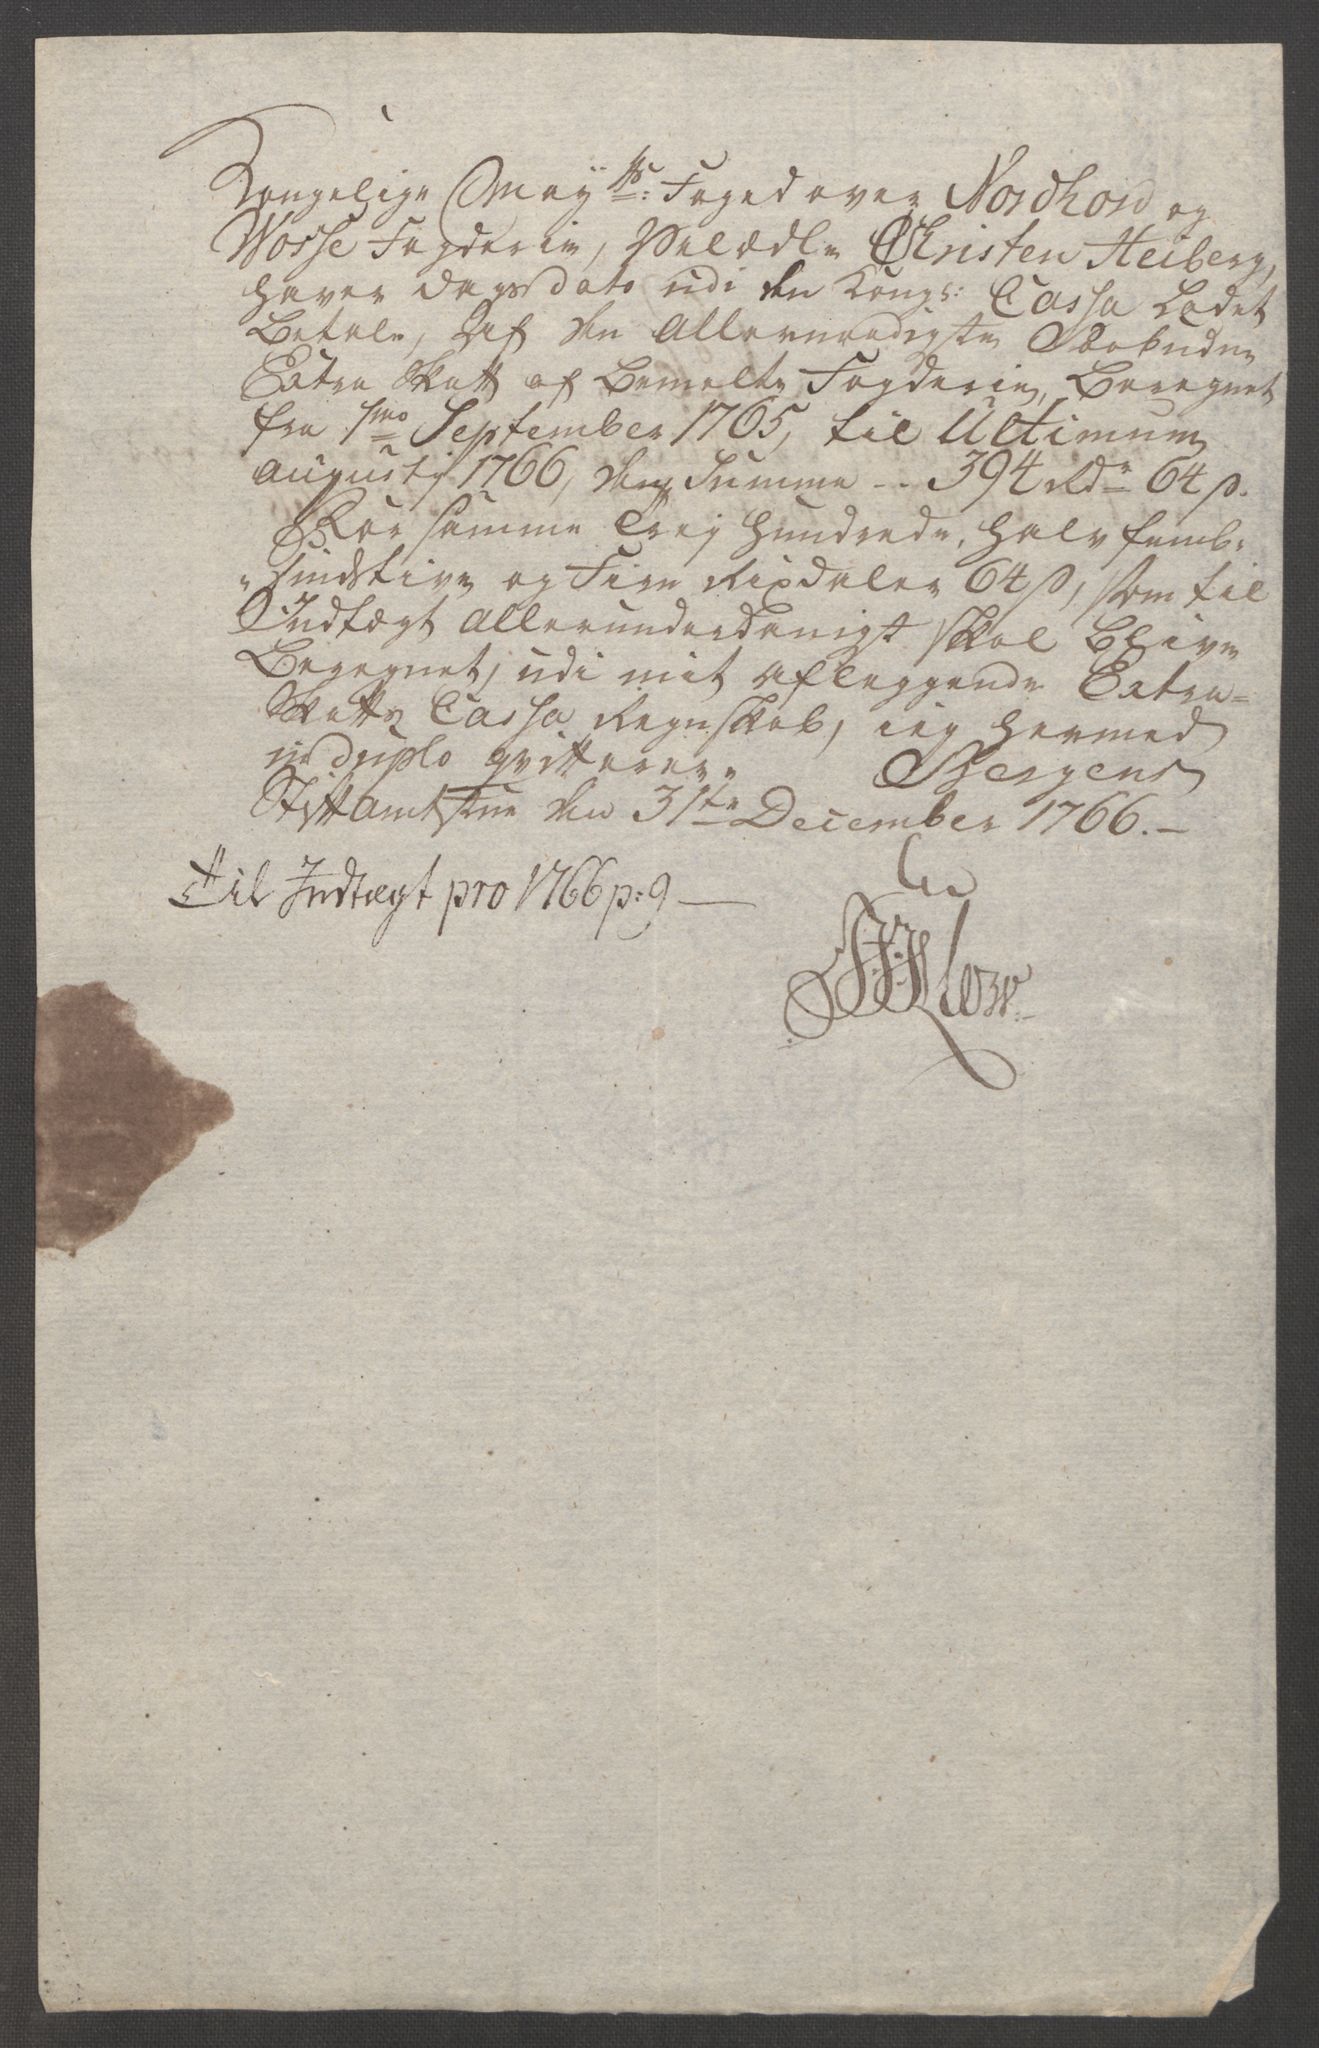 Kongelige May.tts: Foged over Nordhord og
Wosse Fogderie, Velædle Christen Heiberg,
haver Dags dato udi den Kongl: Cassa Ladet
Betale, Af den Allernaadigste Paabudne
Extra Skatt af Bemelte Fogderie, Beregnet
fra 1mo September 1765, til Ultimum
Augusti 1766, den Summa -- 394 Rdr 64 s.
For samme Trej Hundrede, halv femb-
sindstive og Fire Rixdaler 64 s, som til
Indtægt allerunderdanigst skal Blive
Beregnet, udi mit aflæggende Extra-
Skatts Cassa Regnskab, ieg hermed
in duplo qvitterer. Bergens
Stiftamtstue den 31te December 1766.-
Til Indtægt pro 1766 p: 9 —
Klow